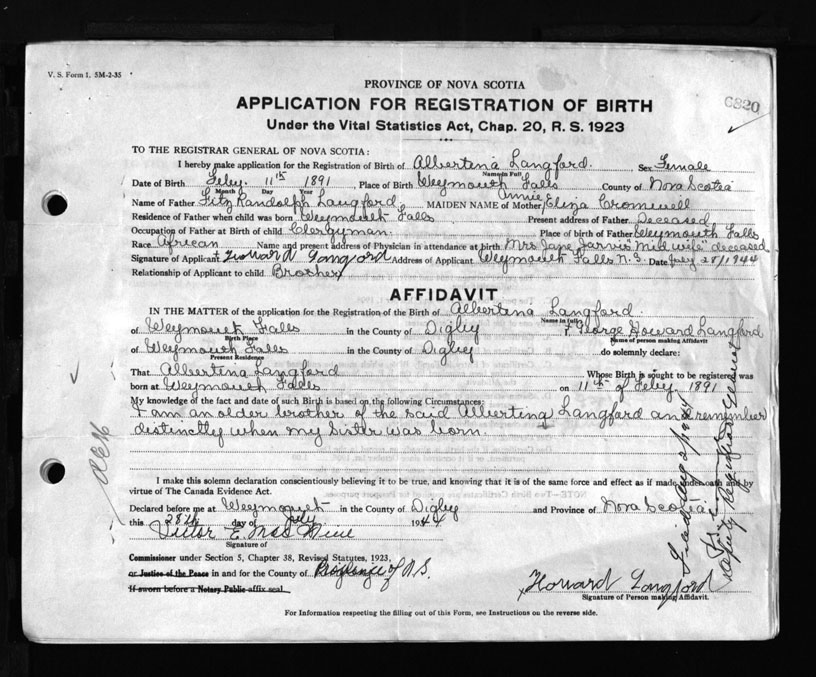 V. S. Form 1. 5M-2-35
PROVINCE OF NOVA SCOTIA
6820
APPLICATION FOR REGISTRATION OF BIRTH
Under the Vital Statistics Act, Chap. 20, R. S. 1923
TO THE REGISTRAR GENERAL OF NOVA SCOTIA:
I hereby make application for the Registration of Birth of Albertina Langford. Sex Female
Name in Full
Date of Birth Feby. 11th 1891 Place of Birth Weymouth Falls County of Nova Scotia
Month Day Year
Annie
Name of Father Fitz Randolph Langford MAIDEN NAME of Mother Eliza Cromwell
Residence of Father when child was born Weymouth Falls Present address of Father Deceased
Occupation of Father at Birth of Child Clergyman. Place of birth of Father Weymouth Falls
Race African Name and present address of Physician in attendance at birth Mrs Jane Jarvis "Mid wife" deceased
Signature of Applicant Howard Langford Address of Applicant Weymouth Falls N.S. Date July 28/1944
Relationship of Applicant to child Brother
AFFIDAVIT
IN THE MATTER of the application for the Registration of the Birth of Albertina Langford.
Name in full
of Weymouth Falls in the County of Digby I, George Howard Langford
Birth Place Name of person making Affidavit
of Weymouth Falls in the County of Digby do solemnly declare:
Present Residence
That Albertina Langford Whose Birth is sought to be registered was
born at Weymouth Falls on 11th of Feby. 1891
My knowledge of the fact and date of such Birth is based on the following Circumstances:
I am an older brother of the said Albertina Langford and remember
distinctly when my sister was born.
I make this solemn declaration conscientiously believing it to be true, and knowing that it is of the same force and effect as if made under oath and by
virtue of The Canada Evidence Act.
Declared before me at Weymouth in the County of Digby and Province of Nova Scotia
this 28th day of July 1944
Victor E.
Signature of
Commissioner under Section 5, Chapter 38, Revised Statutes, 1923,
or Justice of the Peace in and for the County of Province of N.S.
If sworn before a Notary Public affix seal
Howard Langford
Signature of Person making Affidavit.
Deputy Registrar General
For Information respecting the filling out of this Form, see Instructions on the reverse side.